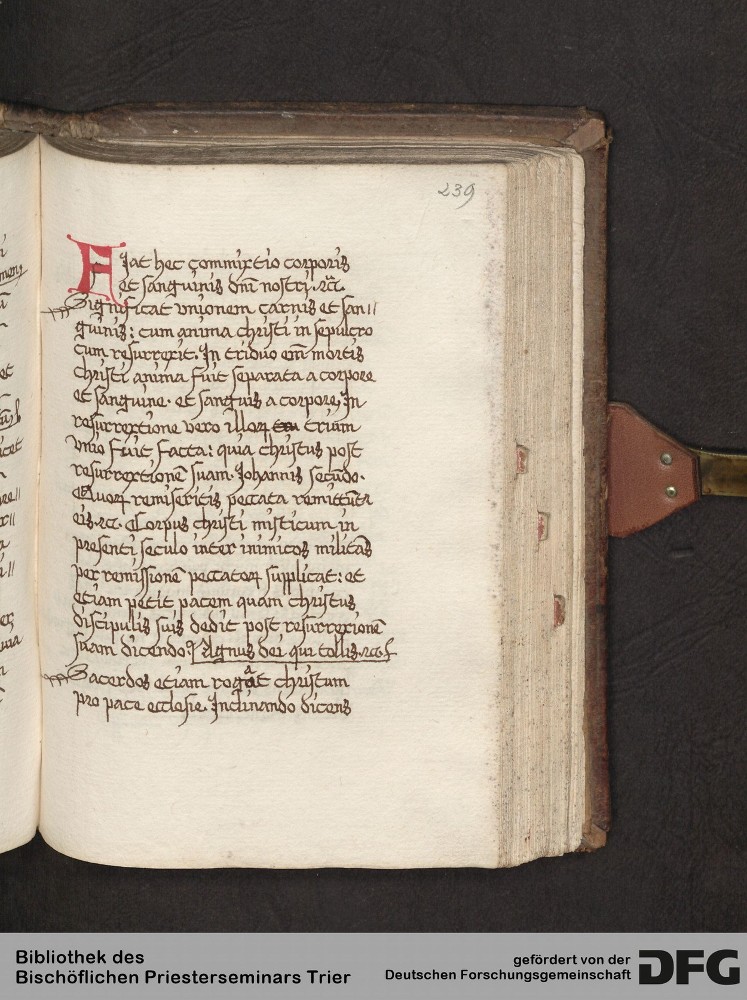 239
Fiat hec commixtio corporis
et sanguinis dñi nostri. ⁊c̃.
Significat vnionem carnis et san//
guinis: cum anima christi in sepulcro
cum resurrexit. In triduo em̃ mortis
christi anima fuit separata a corpore
et sanguine. et sanguis a corpore, In
resurrextione vero illoꝝ trium
vnio fuit facta: quia christus post
resurrextionẽ suam. Johannis secũdo.
Quoꝝ remiseritis peccata remittũt̃
eis. ⁊c. Corpus christi misticum in
presenti seculo inter inimicos militãs
per remissionẽ peccatoꝝ supplicat: et
etiam petit pacem quam christus
discipulis suis dedit post resurrexionẽ
suam dicendo? Agnus dei qui tollis. ⁊c.
Sacerdos etiam rogat christum
pro pace ecclesie. Inclinando dicens
Bibliothek des
Bischöflichen Priesterseminars Trier
gefördert von der
Deutschen Forschungsgemeinschaft
DFG